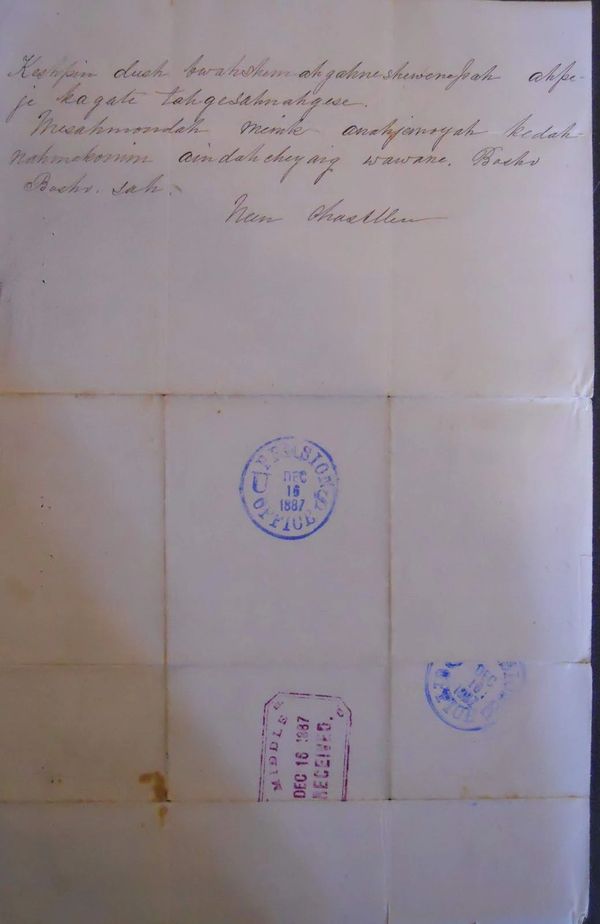 Keshpin dush bwahshemahgahneshewenepah ahpe-
je kagate tahgesahnahgese.
Mesahmondah menik anahjemoyah kedah-
nahmekonim aindahcheyaig wawane. Bosho
Bosho. sah.
Neen
PENSION
OFFICE
DEC
16
1887
DEC
1887
MIDDLE
DEC 16 1887
RECEIVED.